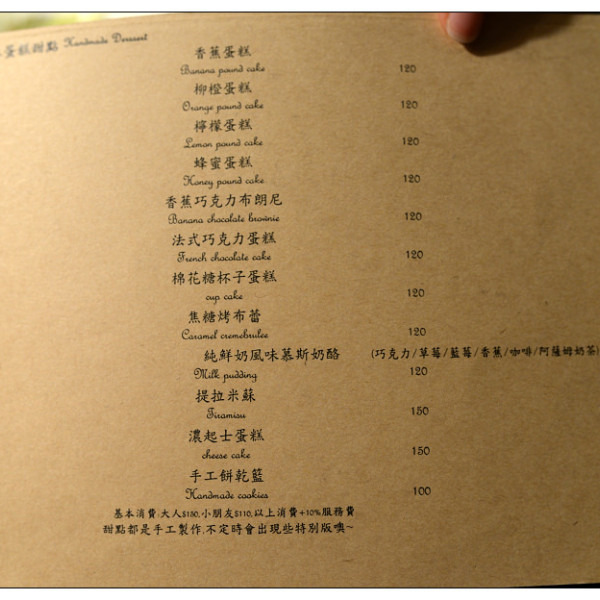 蛋糕甜點 Handmade Dessert
香蕉蛋糕
Banana pound cake 120
柳橙蛋糕
Orange pound cake 120
檸檬蛋糕
Lemon pound cake 120
蜂蜜蛋糕
Honey pound cake 120
香蕉巧克力布朗尼
Banana chocolate brownie 120
法式巧克力蛋糕
French chocolate cake 120
棉花糖杯子蛋糕
cup cake 120
焦糖烤布蕾
Caramel cremebrulee 120
純鮮奶風味慕斯奶酪 (巧克力/草莓/藍莓/香蕉/咖啡/阿薩姆奶茶)
Milk pudding 120
提拉米蘇
Tiramisu 150
濃起士蛋糕
cheese cake 150
手工餅乾籃
Handmade cookies 100
基本消費:大人$150,小朋友$110,以上消費+10%服務費
甜點都是手工製作,不定時會出現些特別版噢~